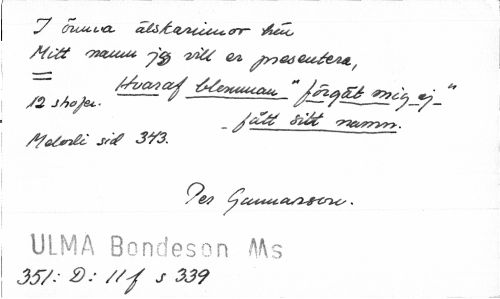 I ömma älskarinnor hén
Mitt namn jag vill er presentera,
Hvaraf blomman "förgät mig ej"
12 strofer.
- fått sitt namn.
Melodi sid 343.
Per Gunnarsson.
ULMA Bondeson Ms
351: D: 11 f s 339